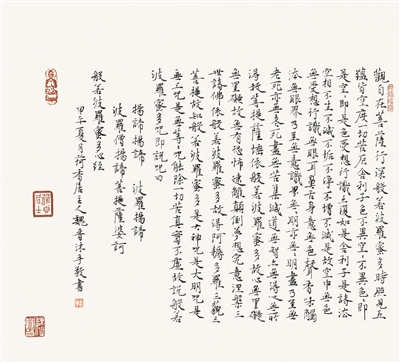 觀自在菩薩行深般若波羅蜜多時照見五
蘊皆空度一切苦厄舍利子色不異空空不異色色即
是空空即是色受想行識亦復如是舍利子是諸法
空相不生不滅不垢不淨不增不減是故空中無色
無受想行識無眼耳鼻舌身意無色聲香味觸
法無眼界乃至無意識界無無明亦無無明盡乃至無
老死亦無老死盡無苦集滅道無智亦無得以無所
得故菩提薩埵依般若波羅蜜多故心無罣礙
無罣礙故無有恐怖遠離顛倒夢想究竟涅槃三
世諸佛依般若波羅蜜多故得阿耨多羅三藐三
菩提故知般若波羅蜜多是大神咒是大明咒是
無上咒是無等等咒能除一切苦真實不虛故說般若
波羅蜜多咒即說咒曰
揭諦揭諦 波羅揭諦
波羅僧揭諦 菩提薩婆訶
般若波羅蜜多心經
甲午夏月荷香居主人魏春 手敬書